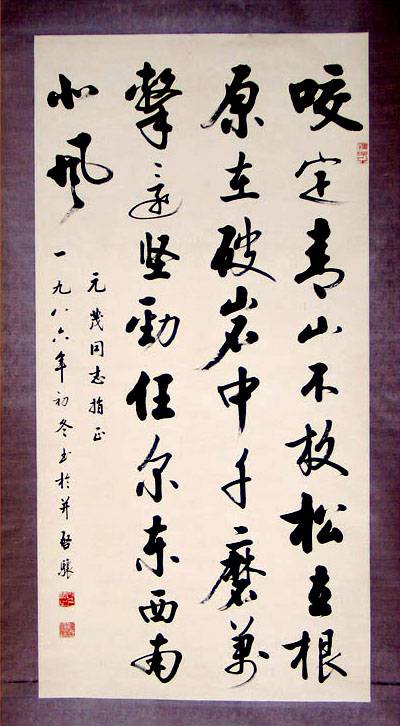 咬定青山不放松立根
原在破岩中千磨萬
擊還坚勁任尔东西南
北风
元茂同志指正
一九八六年初冬书於并 启骧